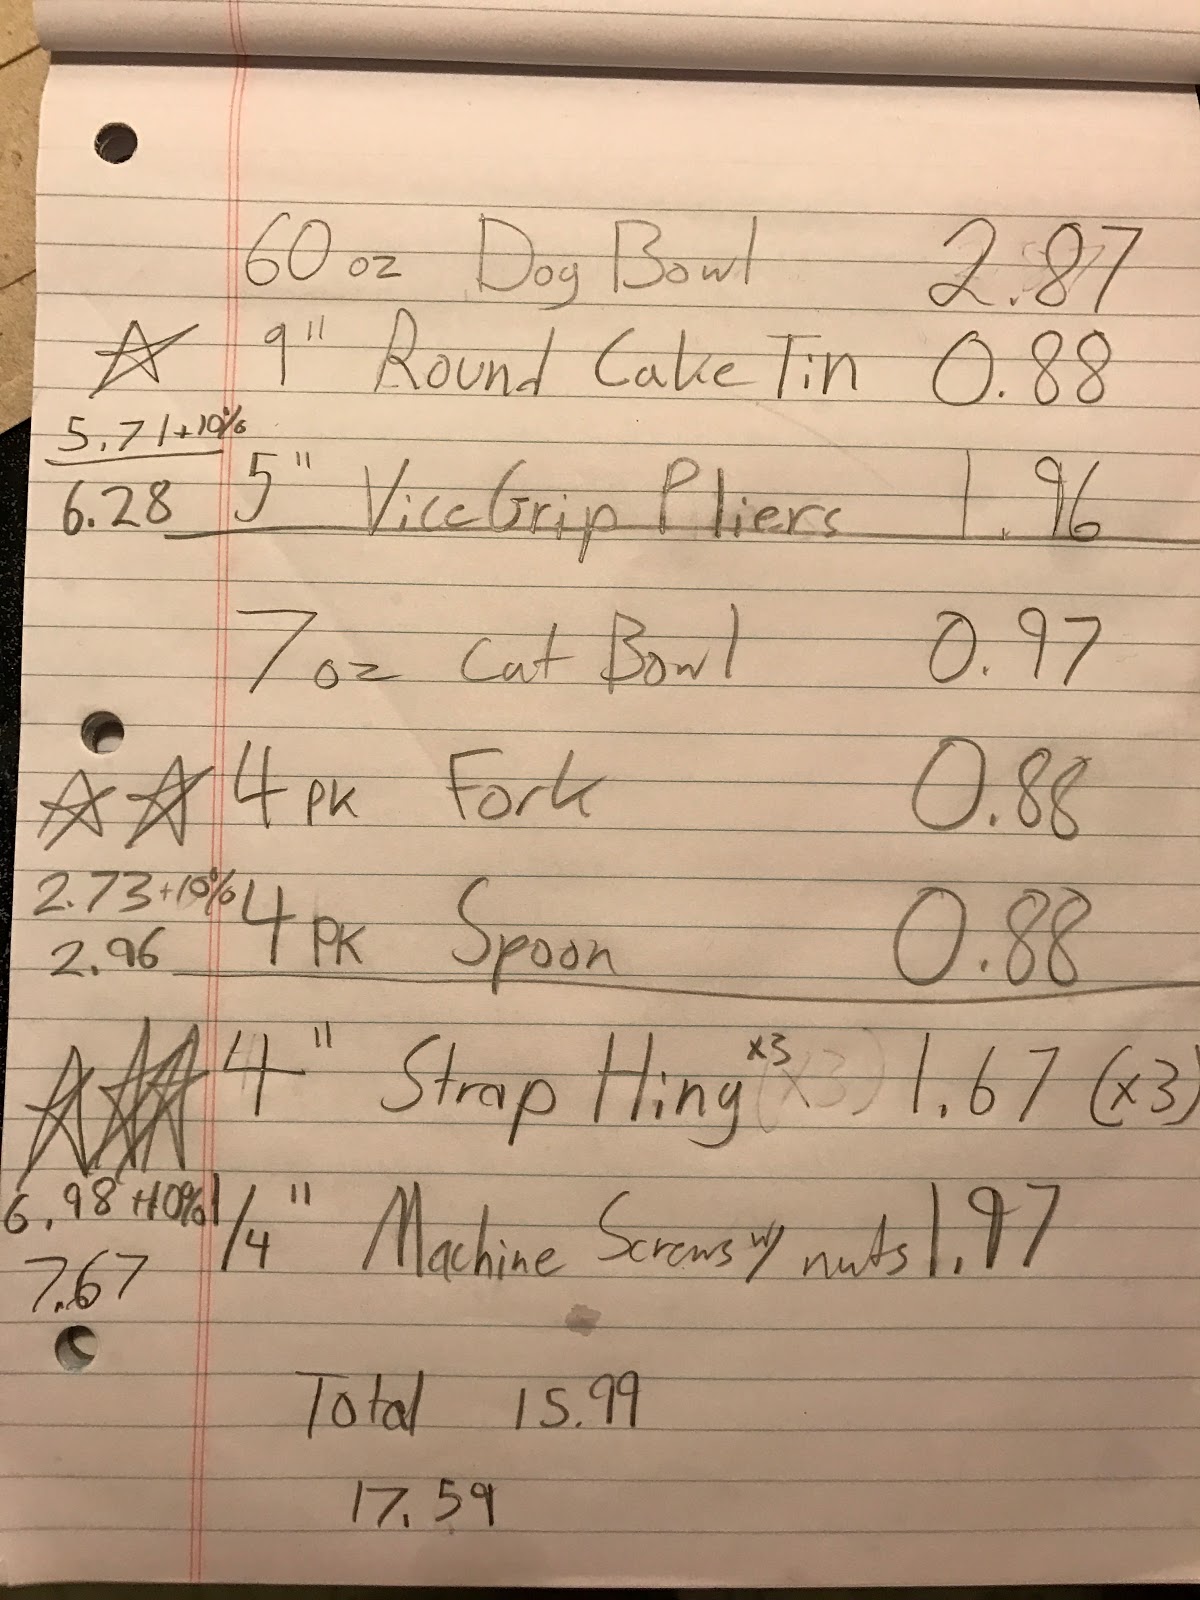 60 oz Dog Bowl 2.87
9" Round Cake Tin 0.88
5.71+10%
6.28
5" Vice Grip Pliers 1.96
7 oz Cat Bowl 0.97
4 PK Fork 0.88
2.73+10%
2.96
4 PK Spoon 0.88
4" Strap Hing x3 (x3) 1.67 (x3)
6.98+10%
7.67
1/4" Machine Screws w/ nuts 1.97
Total 15.99
17.59